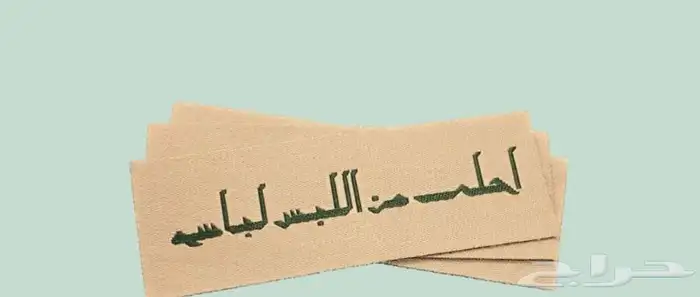 أحلى من اللبس لباسه
حراج